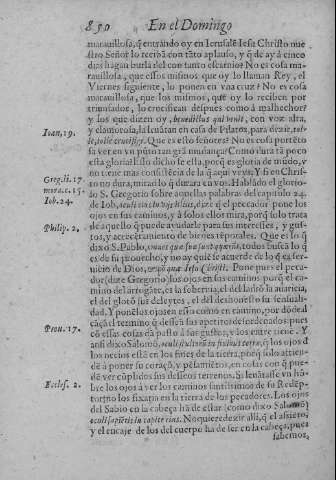 850 En el Domingo
marauillosa, q̃ entrãdo oy en Ierusalẽ Iesu Christo nue
stro Señor lo recibã con tãto aplauso, y q̃ de ay à cinco
dias hagan burla del con tanto escarnio? No es cosa ma-
rauillosa, que essos mismos que oy lo llaman Rey, el
Viernes siguiente, lo ponen en vna cruz? No es cosa
marauillosa, que los mismos, que oy lo reciben por
triunfador, lo crucifican despues como à malhechor?
y los que dizen oy, benedictus qui venit, con voz alta,
Ioan, 19.
y clamorosa, la leuãtan en casa de Pilatos, para dezir, tol-
le, tolle crucifige. Que es esto señores? No es cosa portẽto
sa ver en vn pũto tan grã mudança? Como dura tã poco
esta gloria? Esso dicho se està, porq̃ es gloria de mũdo, y
no tiene mas consistẽcia de la q̃ aqui veys. Y si en Christo
Greg. li. 17
mora. c. 15.
Iob. 24.
no dura, mirad lo q̃ durarà en vos. Hablãdo el glorio-
so S. Gregorio sobre aquellas palabras del capitulo 24.
de Iob, dize q̃ el pecador pone los
ojos en sus caminos, y à solos ellos mira, porq̃ solo trata
Philip. 2.
de aquello q̃ puede ayudarle para sus intereses, y gus-
tos, y acrecentamiento de bienes tẽporales. Que es lo q̃
dixo S. Pablo, omnes quæ sua sunt quærũt, todos buscã lo q̃
es de su prouecho, y no ay quiẽ se acuerde de lo q̃ es ser-
uicio de Dios, nõ quæ Iesu Christi. Pone pues el peca-
dor (dize Gregorio) los ojos en sus caminos: porq̃ el ca-
mino del arrogãte, es la soberuia, el del ladrõ la auaricia,
el del glotõ sus deleytes, el del deshonesto su sensuali-
dad. Y ponẽlos ojos en esso como en camino, por dõde al
Prou. 17.
cãçan el termino q̃ dessean sus apetitos desordenados: pues
cõ essas cosas dã pasto à sus gustos, y los entretiene. Y
ansi dixo Salomõ, oculi stultorũ in finibus terræ, q̃ los ojos d̃
los necios estã en los fines de la tierra, porq̃ solo atiẽ-
dẽ à poner su coraçõ, y pẽsamiẽtos, en cosas con q̃ pue-
dẽ ver cũplidos sus desseos terrenos. Si leuãtasse vn hõ-
Eccles. 2.
bre los ojos à ver los caminos santissimos de su Redẽp-
tor, no los fixara en la tierra de los pecadores. Los ojos
del Sabio en la cabeça hã de estar (como dixo Salomõ)
oculi sapiẽtis in capite eius. No quiere dezir alli, q̃ el assiẽto,
y el encaje de los del cuerpo ha de ser en la cabeça, pues
sabemos,